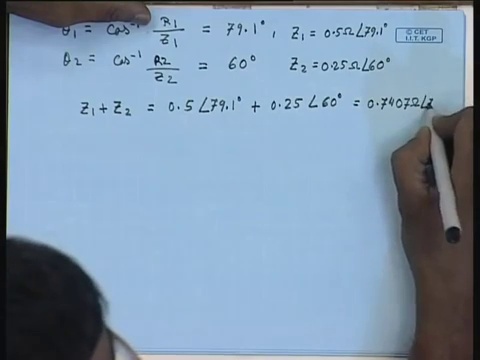 θ₁ = cos⁻¹ R₁/Z₁ = 79.1°, Z₁ = 0.5Ω∠79.1°
© CET
I.I.T. KGP
θ₂ = cos⁻¹ R₂/Z₂ = 60° Z₂ = 0.25Ω∠60°
Z₁ + Z₂ = 0.5∠79.1° + 0.25∠60° = 0.7407Ω∠